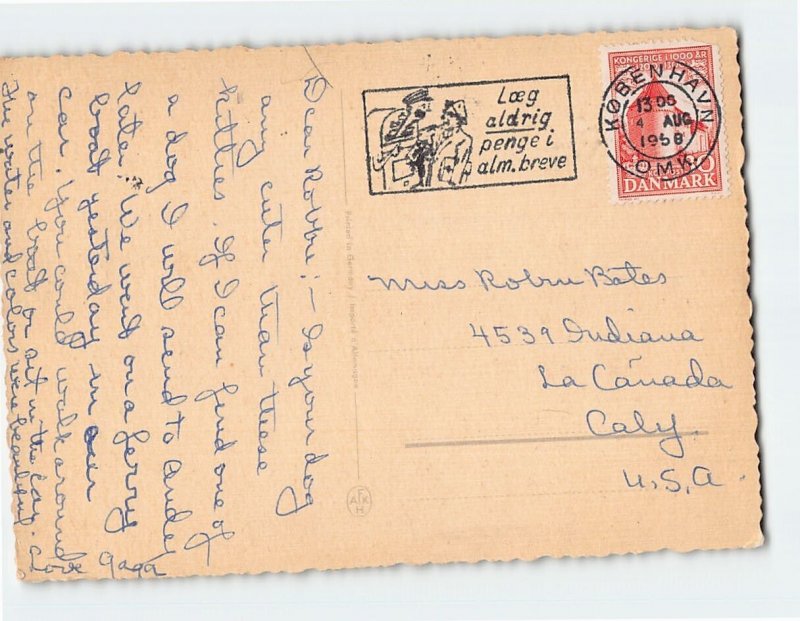 Dear Robbie:- Is your dog
any cuter than these
kitties. If I can find one of
a dog I will send to Andy
later. We went on a ferry
boat yesterday in our
car. You could walk around
on the boat or sit in the car.
The water and colors were beautiful.
Love Gaga
Printed in Germany / Importé d'Allemagne
AFKH
Læg
aldrig
penge i
alm. breve
KONGERIGE I 1000 ÅR
KØBENHAVN
4 AUG
1958
OMK.
DANMARK
Miss Robin Bates
4539 Indiana
La Cañada
Caly.
U.S.A.